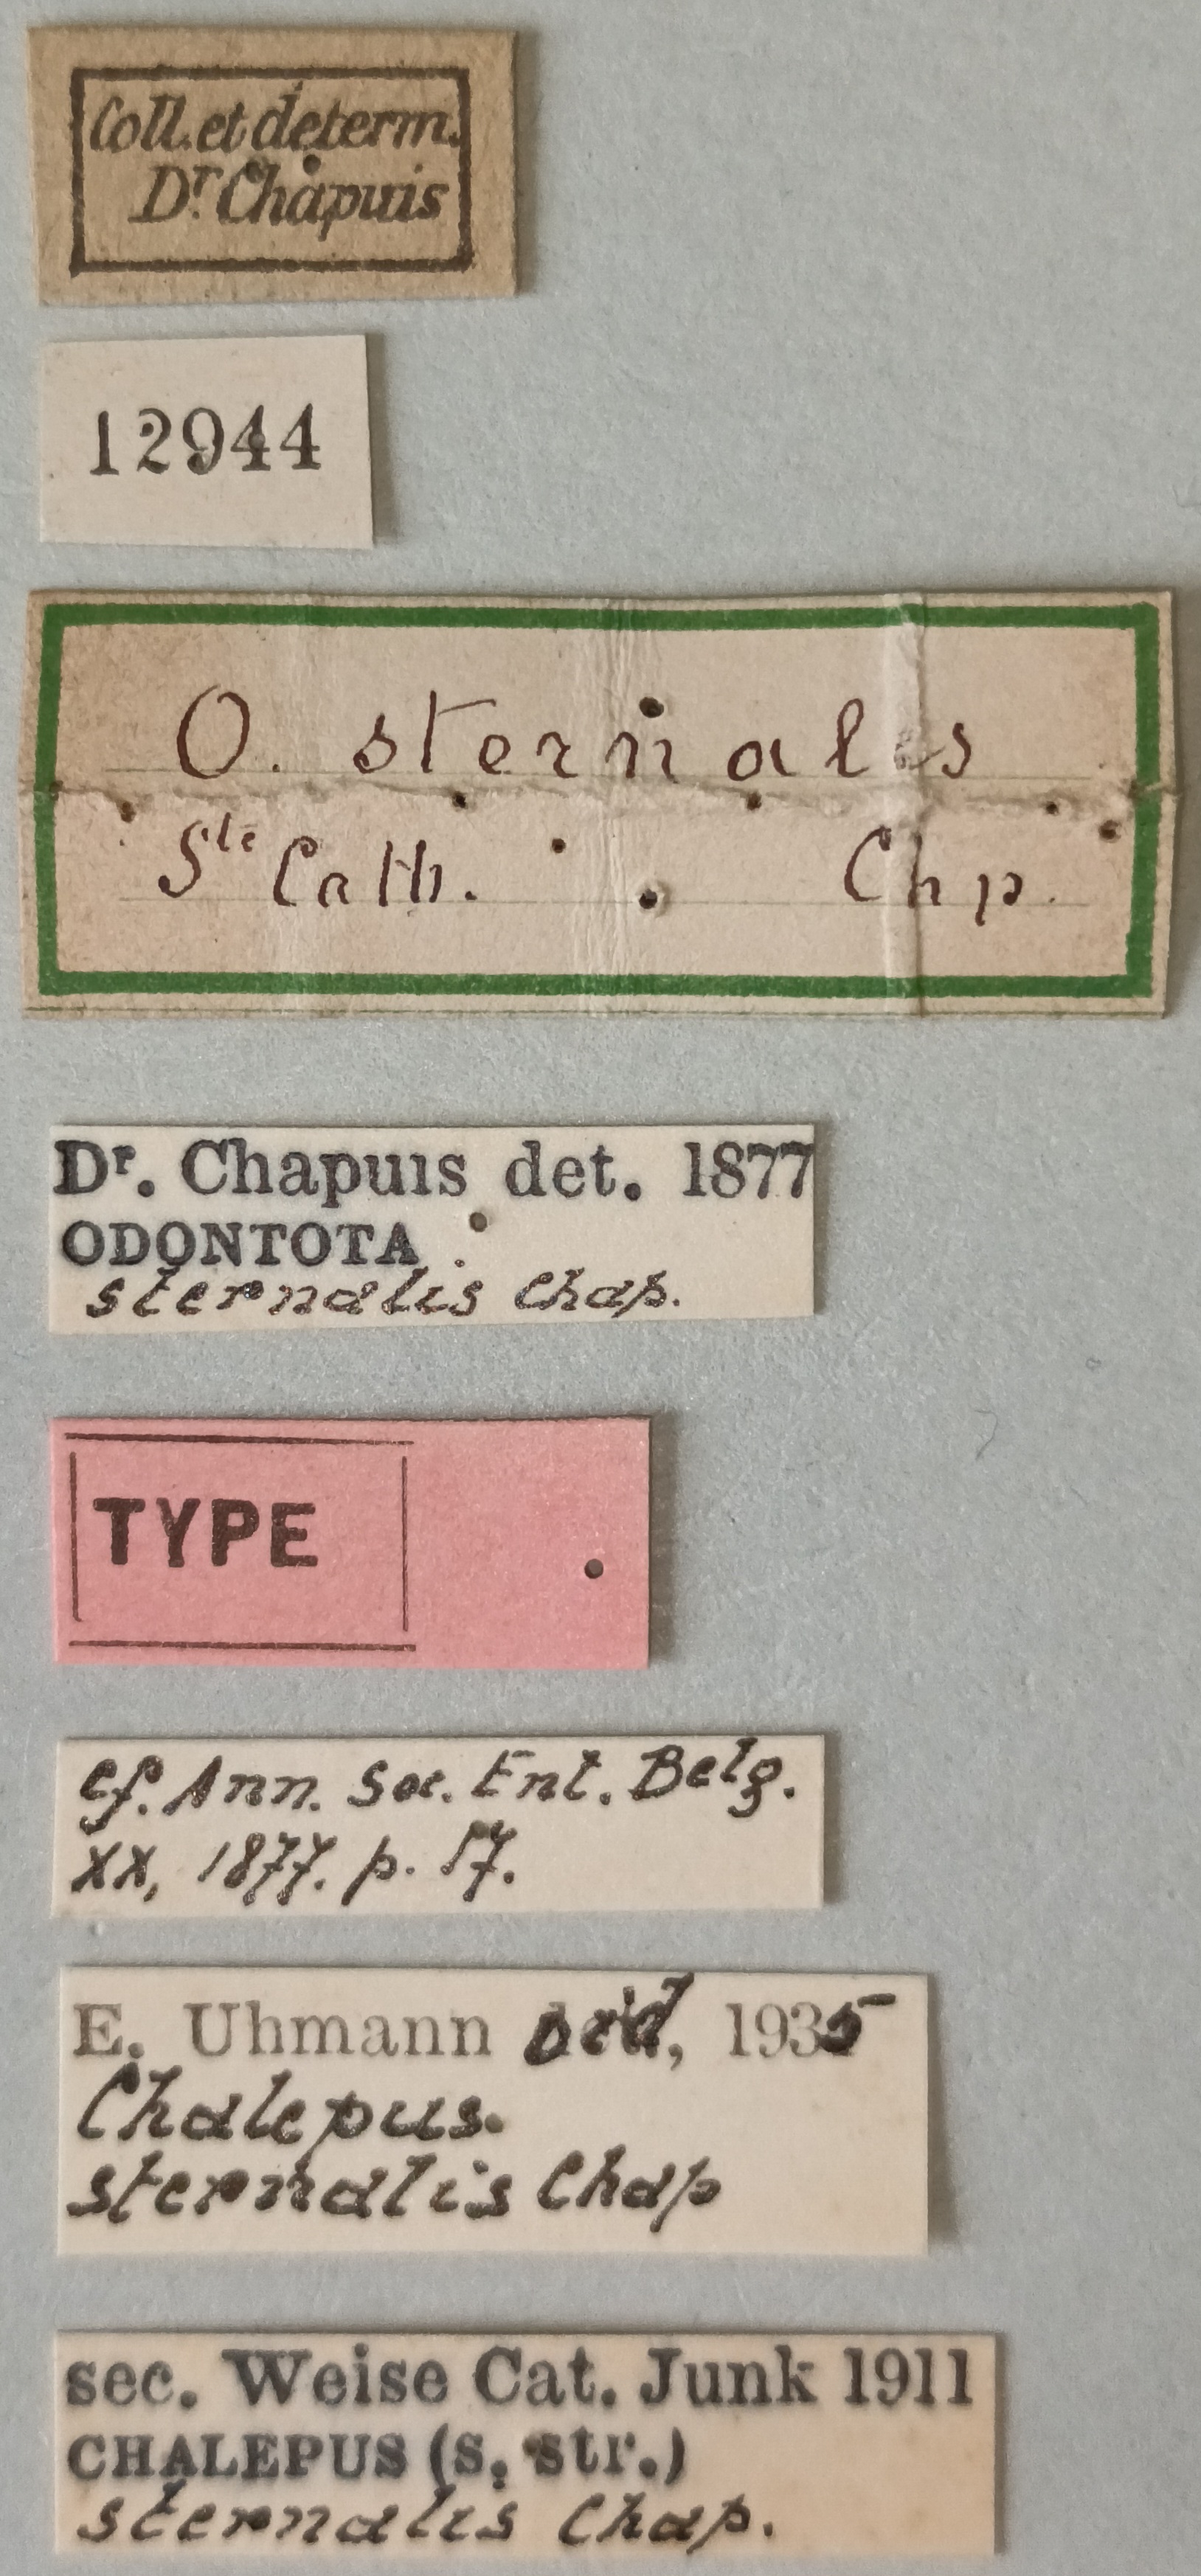 Coll. et determ.
Dr. Chapuis
12944
O. sternalis
Ste Cath. Chp.
Dr. Chapuis det. 1877
ODONTOTA
sternalis Chap.
TYPE
cf. Ann. Soc. Ent. Belg.
XX, 1877. p. 17.
E. Uhmann vid, 1935
Chalepus
sternalis Chap
sec. Weise Cat. Junk 1911
CHALEPUS (s. str.)
sternalis Chap.